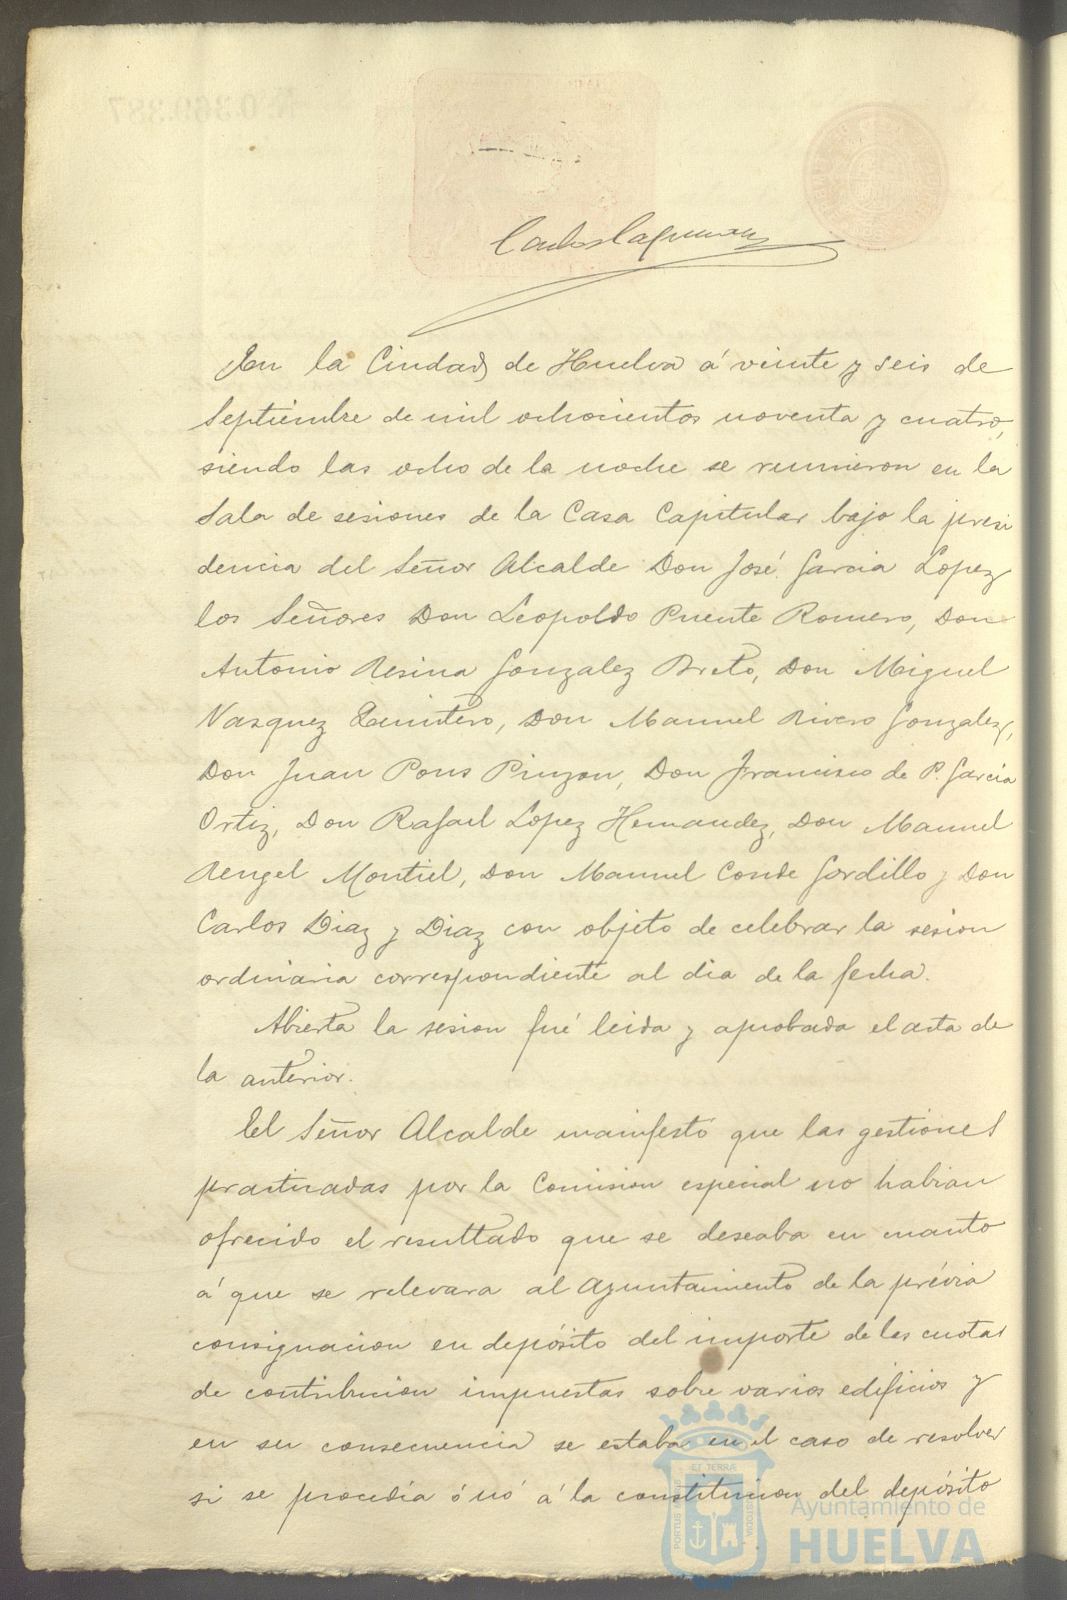 En la Ciudad de Huelva á veinte y seis de
Septiembre de mil ochocientos noventa y cuatro,
siendo las ocho de la noche se reunieron en la
Sala de sesiones de la Casa Capitular bajo la presi
dencia del Señor Alcalde Don José Garcia Lopez
los Señores Don Leopoldo Puente Romero, Don
Antonio Resina Gonzalez Breto, Don Miguel
Vazquez Quintero, Don Manuel Rivero Gonzalez,
Don Juan Pons Pinzon, Don Francisco de P. Garcia
Ortiz, Don Rafael Lopez Hernandez, Don Manuel
Rengel Montiel, Don Manuel Conde Gordillo y Don
Carlos Diaz y Diaz con objeto de celebrar la sesion
ordinaria correspondiente al dia de la fecha.
Abierta la sesion fué leida y aprobada el acta de
la anterior.
El Señor Alcalde manifestó que las gestiones
practicadas por la Comision especial no habian
ofrecido el resultado que se deseaba en cuanto
á que se relevara al Ayuntamiento de la prévia
consignacion en depósito del importe de las cuotas
de contribucion impuestas sobre varios edificios y
en su consecuencia se estaba en el caso de resolver
si se procedia ó nó á la constitucion del depósito
PORTUS MARIS ET TERRÆ CUSTODIA
Ayuntamiento de
HUELVA